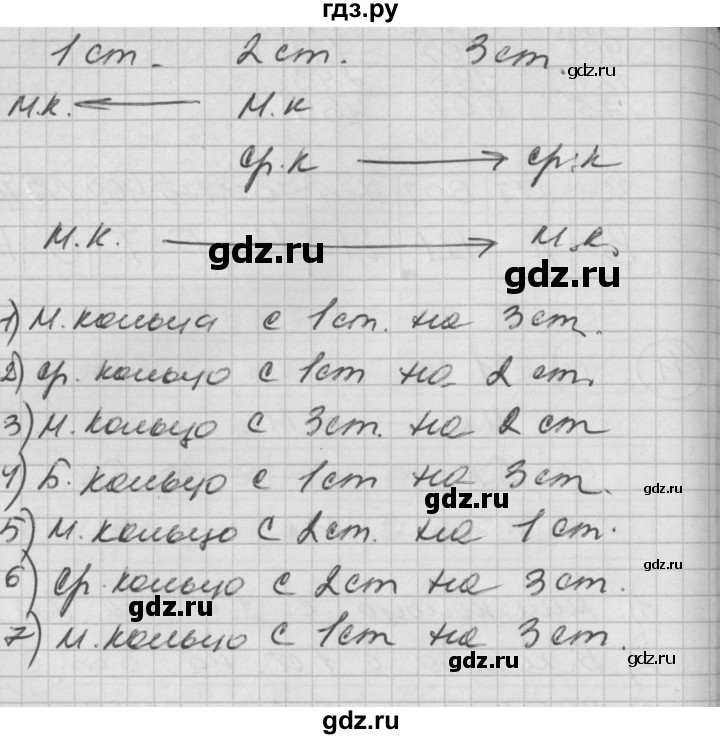 гдз.ру
1 ст. 2 ст. 3 ст.
gdz.ru
м.к. ← м.к
ср.к → ср.к
м.к. → м.к.
gdz.ru
gdz.ru
1) М. кольца с 1 ст. на 3 ст.
gdz.ru
2) ср. кольцо с 1 ст на 2 ст.
3) м. кольцо с 3 ст. на 2 ст
4) Б. кольцо с 1 ст на 3 ст.
gdz.ru
gdz.ru
5) м. кольцо с 2 ст. на 1 ст.
gdz.ru
6) ср. кольцо с 2 ст на 3 ст.
gdz.ru
7) м. кольцо с 1 ст на 3 ст.
gdz.ru
gdz.ru
gdz.ru